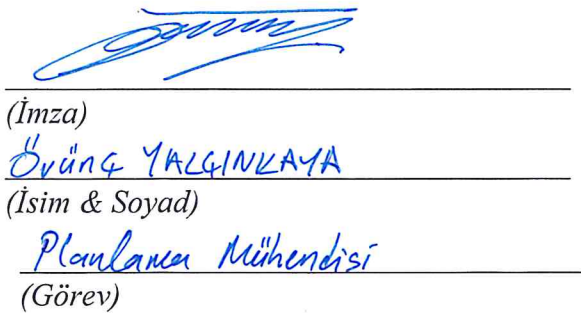 (İmza)
Övünç YALÇINKAYA
(İsim & Soyad)
Planlama Mühendisi
(Görev)